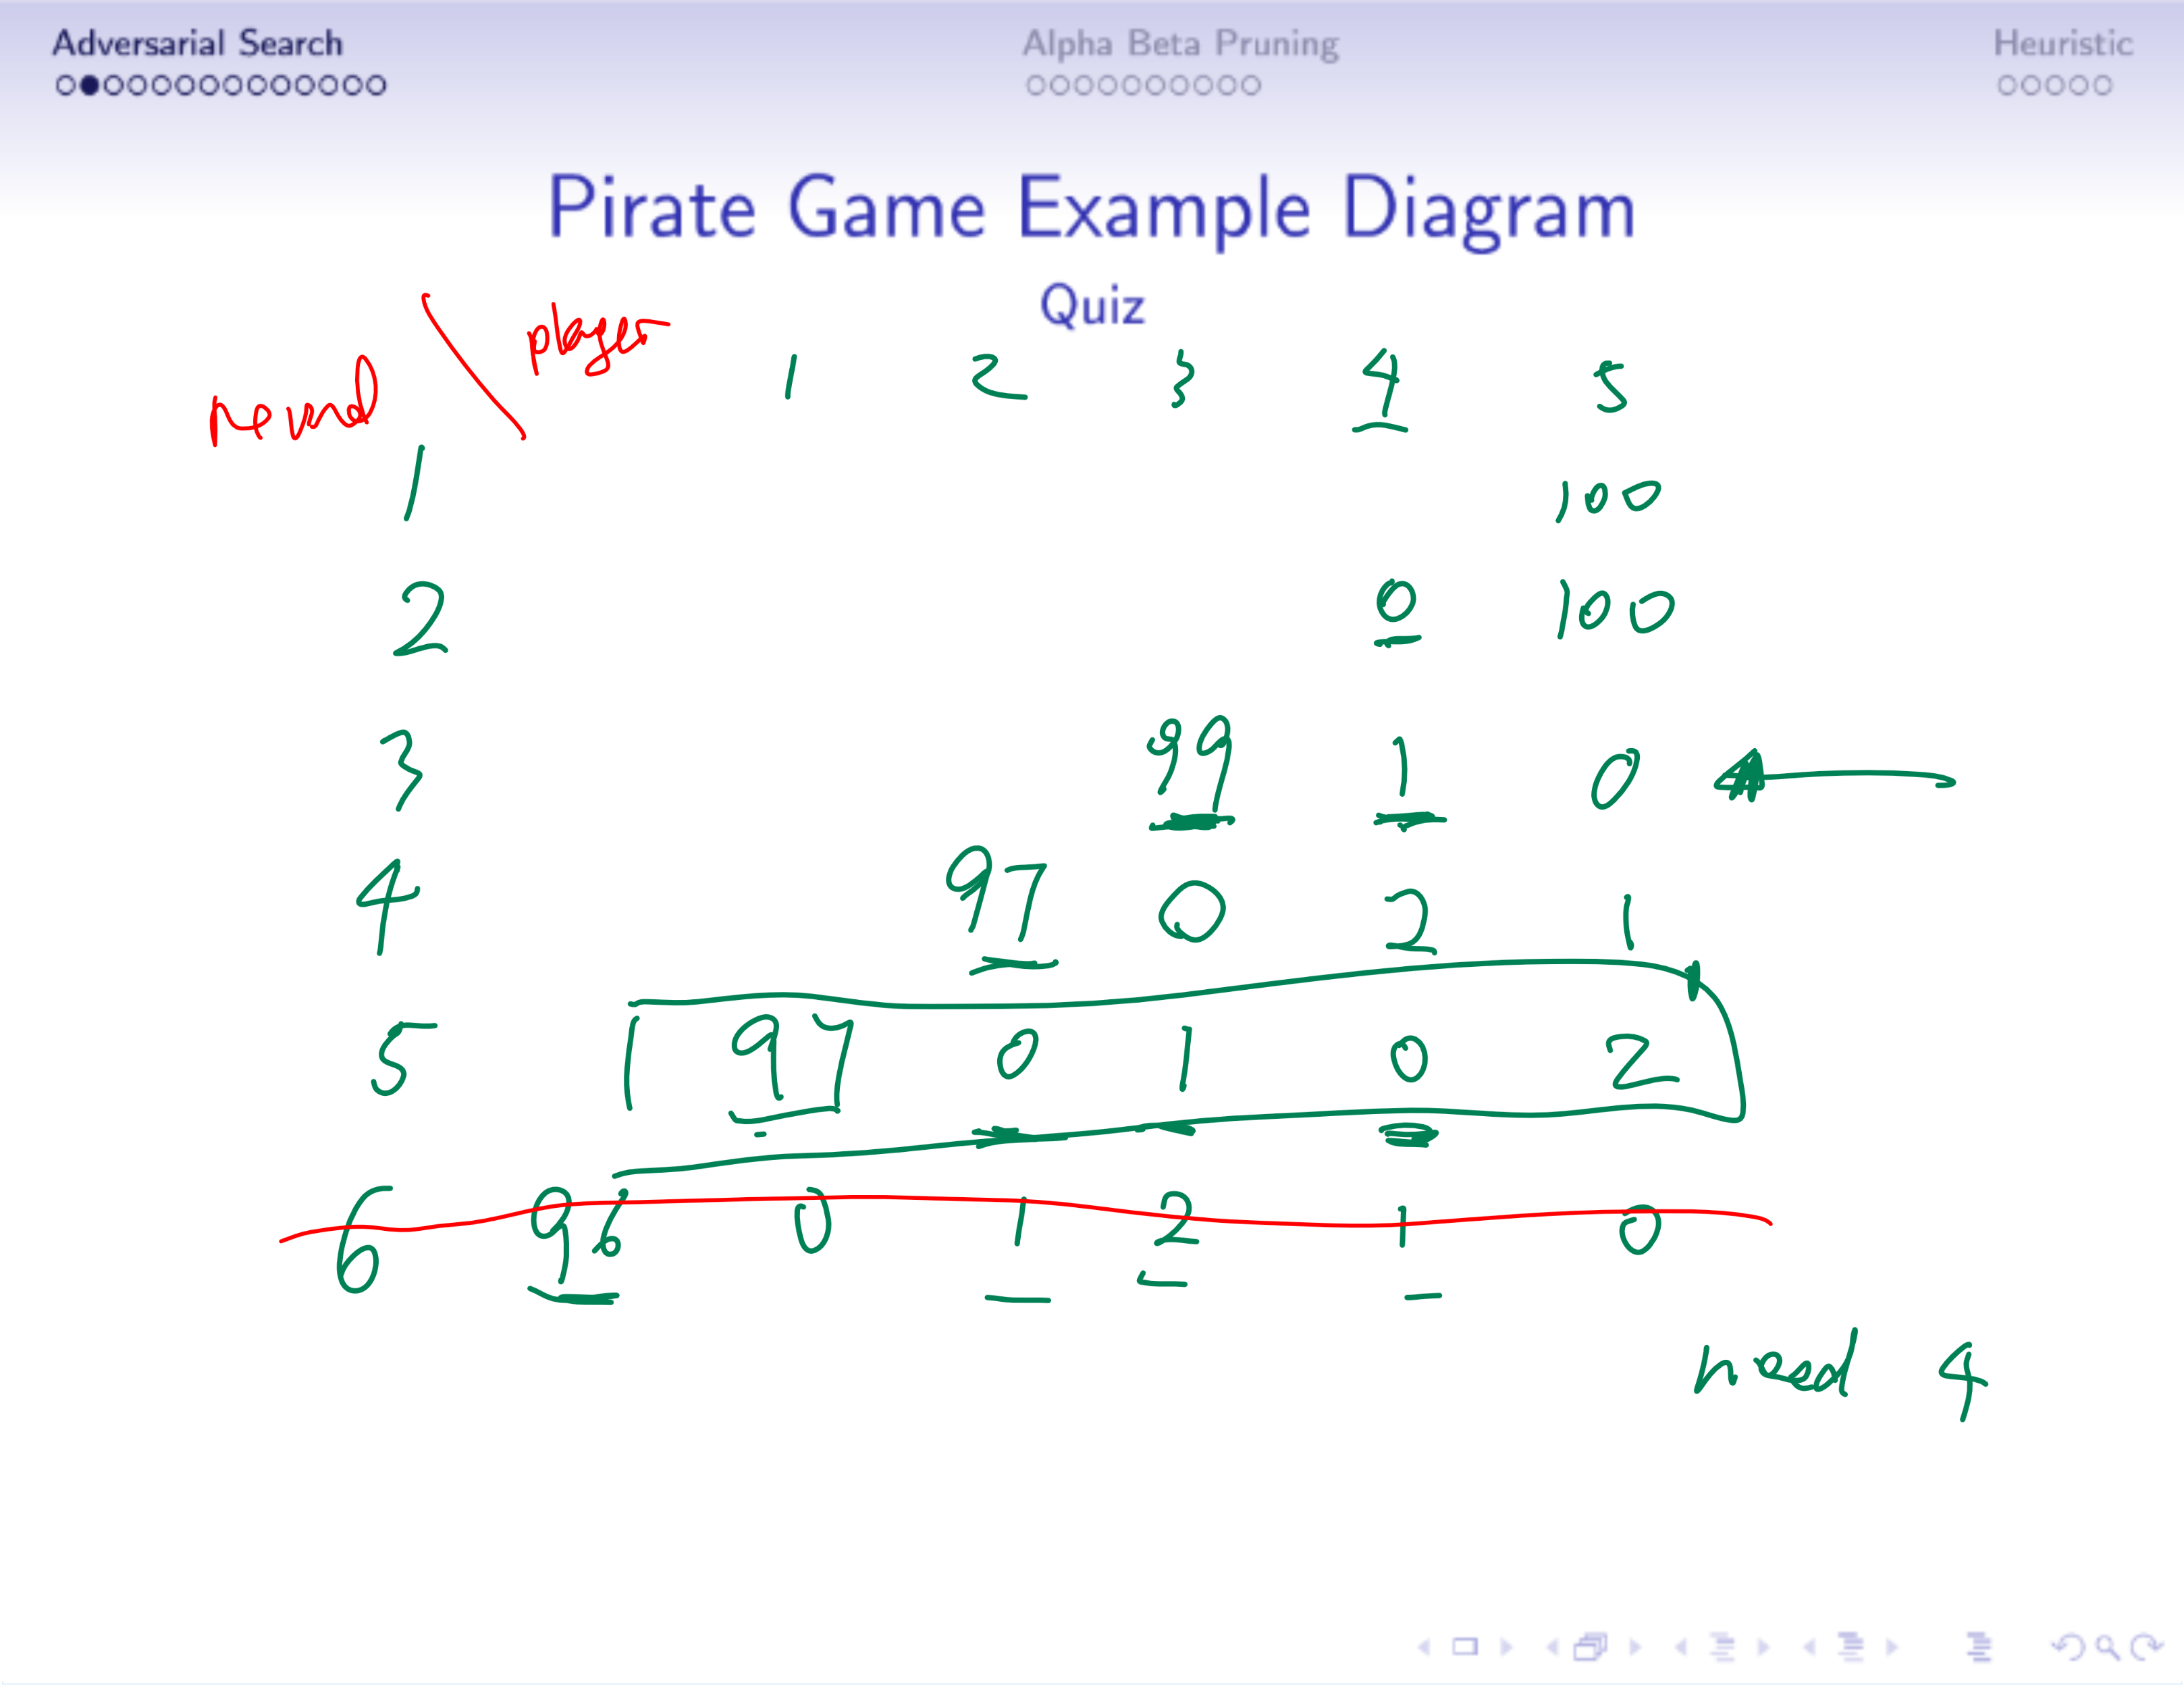 Adversarial Search Alpha Beta Pruning Heuristic
Pirate Game Example Diagram
Quiz
player
1 2 3 4 5
1 100
2 0 100
3 99 1 0
4 97 0 2 1
5 97 0 1 0 2
6 96 0 1 2 1 0
need 4